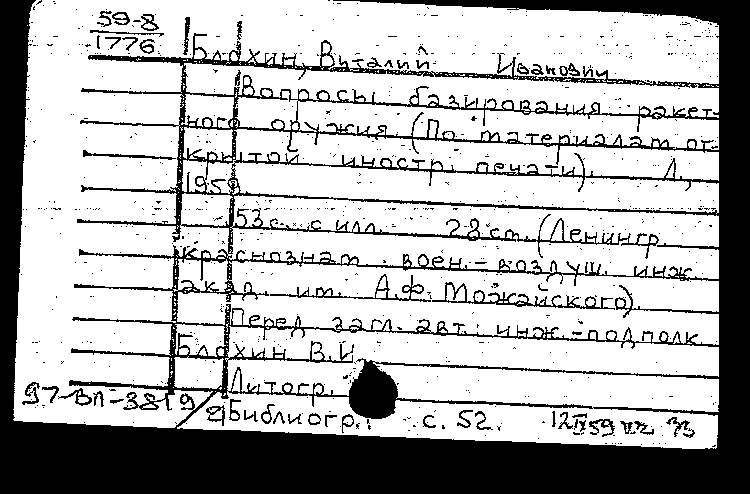 59-8
1776
Блохин, Виталий Иванович
Вопросы базирования ракет-
ного оружия (По материалам от-
крытой иностр. печати). Л.,
1959.
53 с. с илл. 28 см. (Ленингр.
краснознам. воен.-воздуш. инж.
акад. им. А.Ф. Можайского).
Перед загл. авт.: инж.-подполк.
Блохин В.И.
Литогр.
Библиогр.: с. 52.
97-ВЛ-3819